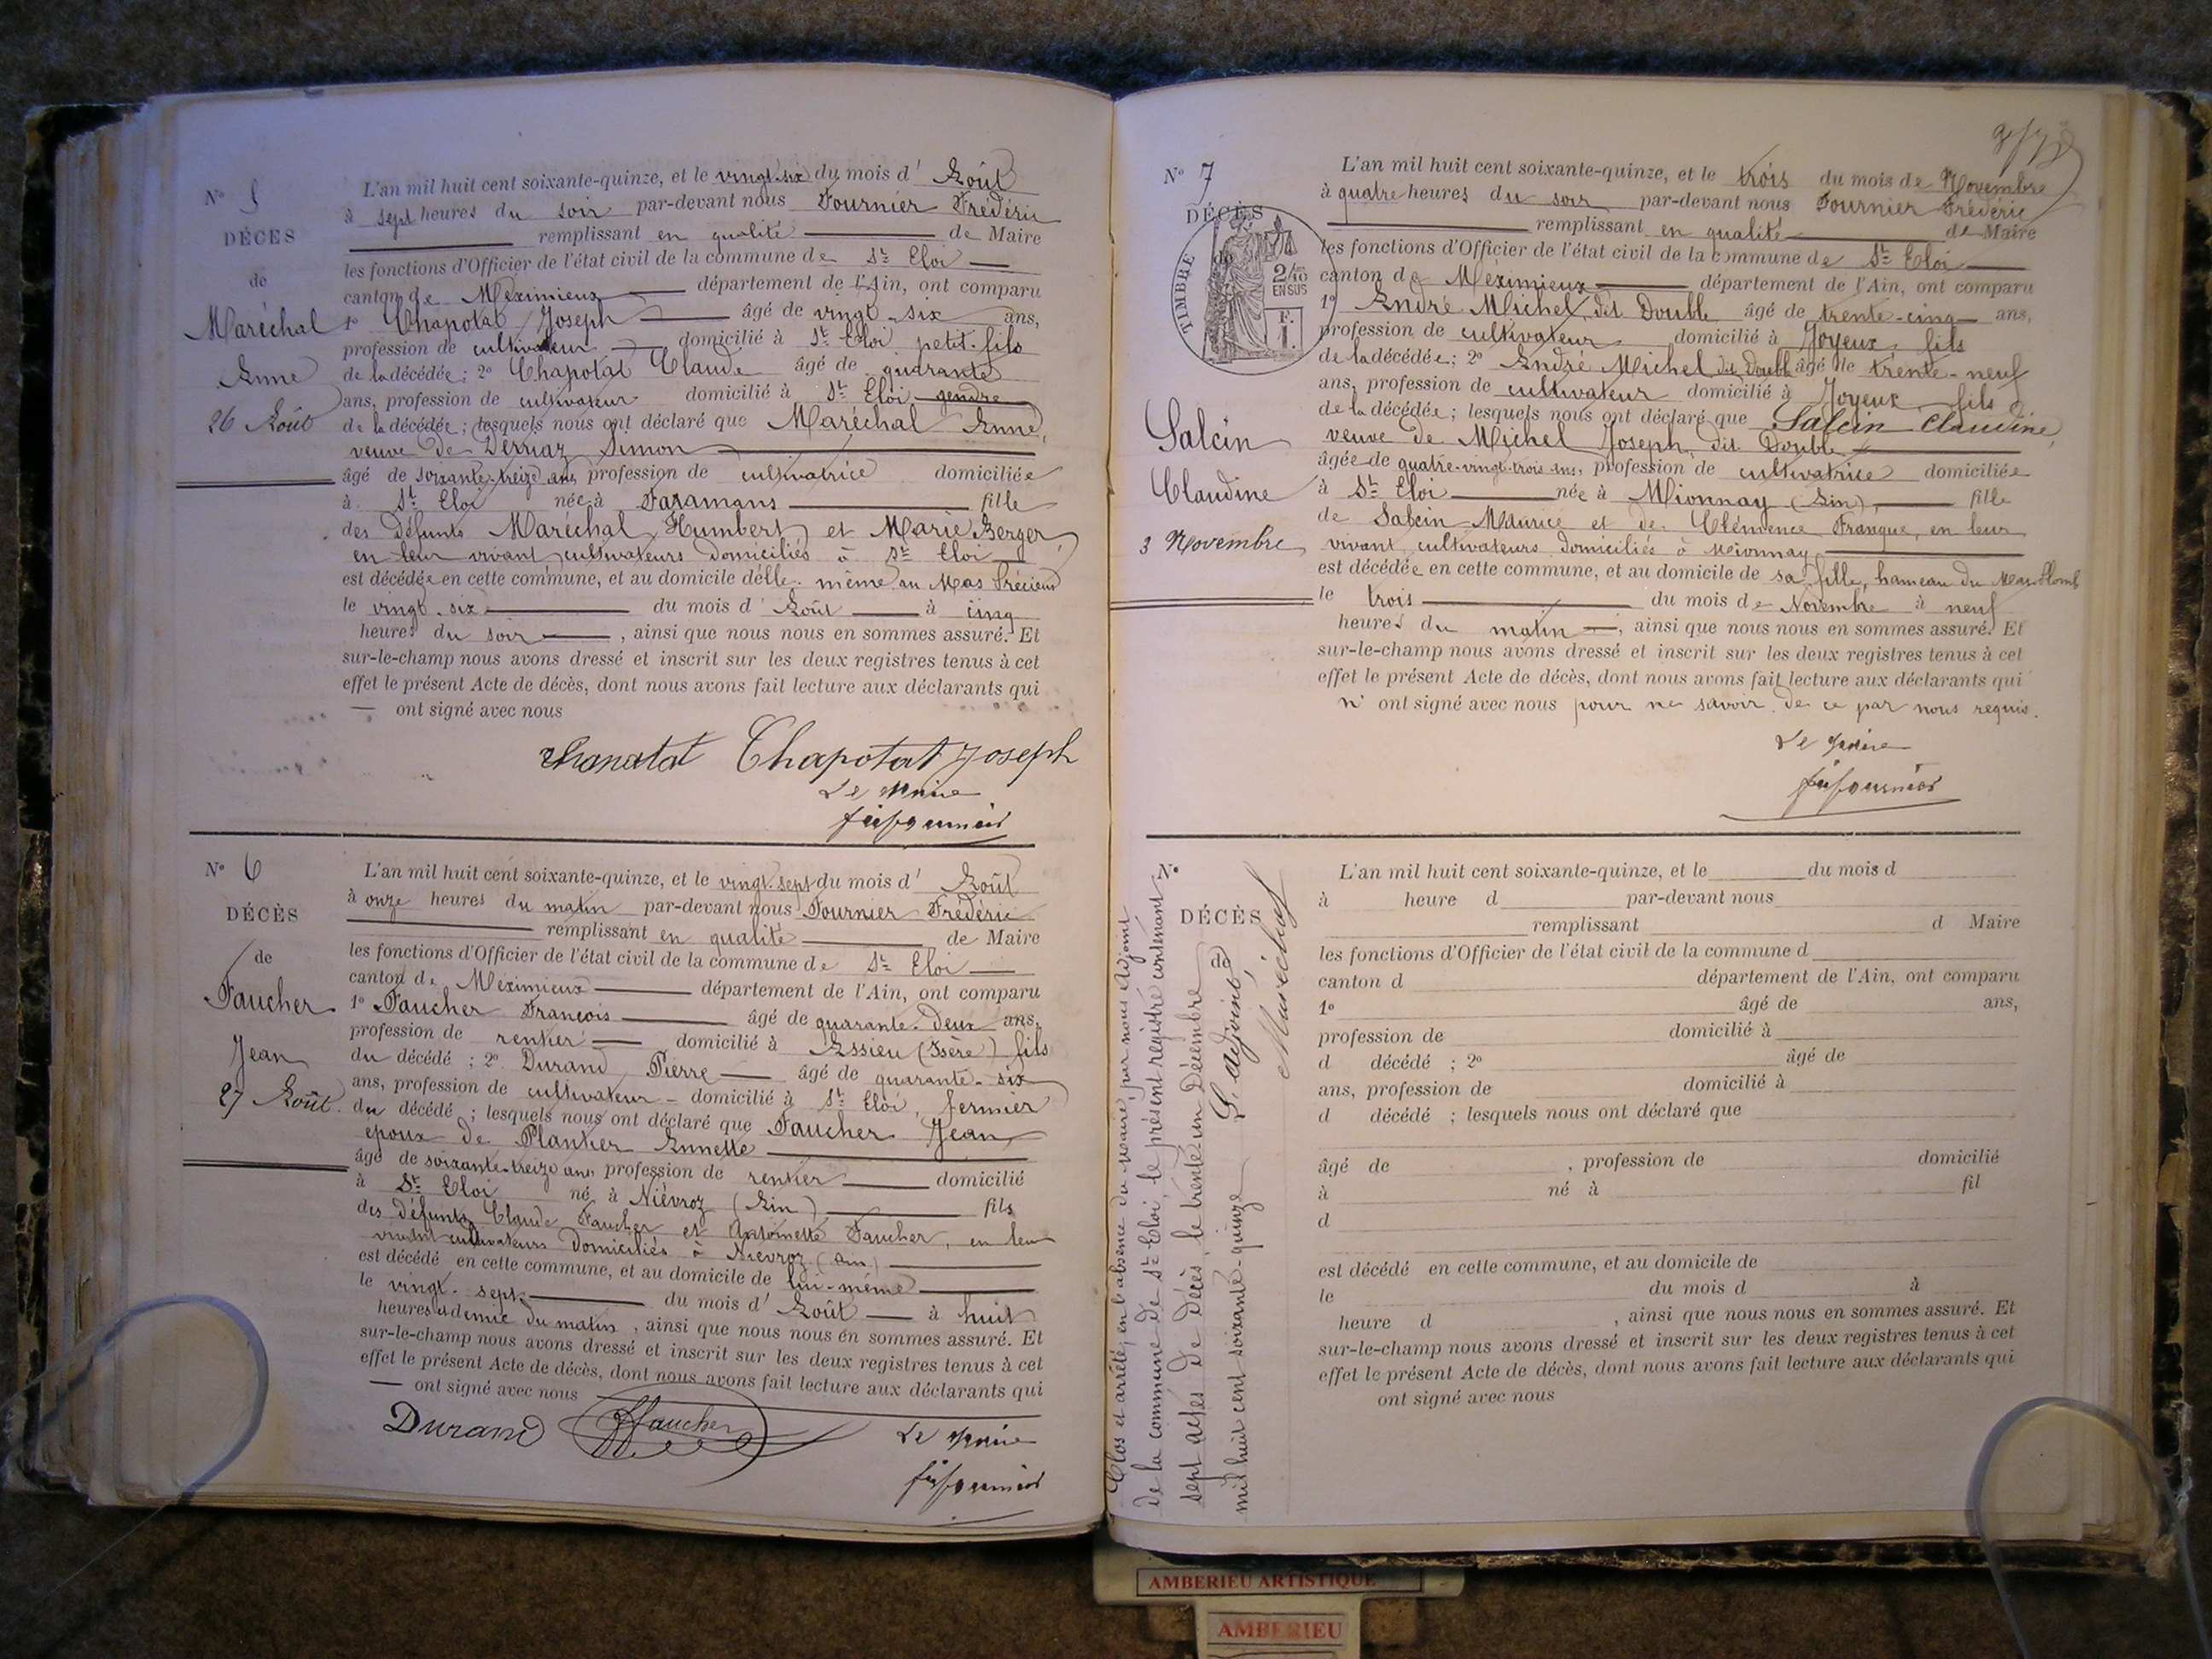 N° 5
DÉCÈS
de
Maréchal
Anne
26 Août
L'an mil huit cent soixante-quinze, et le vingt-six du mois d' Août
à sept heures du soir par-devant nous Fournier Frédéric
remplissant en qualité de Maire
les fonctions d'Officier de l'état civil de la commune de St Eloi
canton de Méximieux département de l'Ain, ont comparu
1° Chapotat Joseph âgé de vingt-six ans,
profession de cultivateur domicilié à St Eloi petit-fils
de la décédée; 2° Chapotat Claude âgé de quarante
ans, profession de cultivateur domicilié à St Eloi gendre
de la décédée; lesquels nous ont déclaré que Maréchal Anne,
veuve de Derriaz Simon
âgé de soixante-treize ans, profession de cultivatrice domiciliée
à St Eloi née à Faramans fille
des défunts Maréchal Humbert et Marie Berger,
en leur vivant cultivateurs domiciliés à St Eloi
est décédée en cette commune, et au domicile d'elle-même au Mas
le vingt-six du mois d' Août à cinq
heures du soir, ainsi que nous nous en sommes assuré. Et
sur-le-champ nous avons dressé et inscrit sur les deux registres tenus à cet
effet le présent Acte de décès, dont nous avons fait lecture aux déclarants qui
ont signé avec nous
Chapotat Joseph
Le Maire
N° 6
DÉCÈS
de
Faucher
Jean
27 Août.
L'an mil huit cent soixante-quinze, et le vingt-sept du mois d' Août
à onze heures du matin par-devant nous Fournier Frédéric
remplissant en qualité de Maire
les fonctions d'Officier de l'état civil de la commune de St Eloi
canton de Méximieux département de l'Ain, ont comparu
1° Faucher François âgé de quarante-deux ans,
profession de rentier domicilié à Assieu (Isère) fils
du décédé; 2° Durand Pierre âgé de quarante-six
ans, profession de cultivateur domicilié à St Eloi, fermier
du décédé; lesquels nous ont déclaré que Faucher Jean,
époux de Plantier Annette
âgé de soixante-treize ans, profession de rentier domicilié
à St Eloi né à Niévroz (Ain) fils
des défunts Claude Faucher et Antoinette Faucher, en leur
vivant cultivateurs domiciliés à Niévroz (Ain)
est décédé en cette commune, et au domicile de lui-même
le vingt-sept du mois d' Août à huit
heures et demie du matin, ainsi que nous nous en sommes assuré. Et
sur-le-champ nous avons dressé et inscrit sur les deux registres tenus à cet
effet le présent Acte de décès, dont nous avons fait lecture aux déclarants qui
ont signé avec nous
Durand Faucher Le Maire
N° 7
DÉCÈS
de
TIMBRE
2/10 EN SUS
F. 1.
Salcin
Claudine
3 Novembre
L'an mil huit cent soixante-quinze, et le trois du mois de Novembre
à quatre heures du soir par-devant nous Fournier Frédéric
remplissant en qualité de Maire
les fonctions d'Officier de l'état civil de la commune de St Eloi
canton de Méximieux département de l'Ain, ont comparu
1° André Michel, dit Double âgé de trente-cinq ans,
profession de cultivateur domicilié à Joyeux fils
de la décédée; 2° André Michel dit Double âgé de trente-neuf
ans, profession de cultivateur domicilié à Joyeux, fils
de la décédée; lesquels nous ont déclaré que Salcin Claudine,
veuve de Michel Joseph, dit Double
âgée de quatre-vingt-trois ans, profession de cultivatrice domiciliée
à St Eloi née à Mionnay (Ain), fille
de Salcin Maurice et de Clémence Franque, en leur
vivant cultivateurs domiciliés à Mionnay
est décédée en cette commune, et au domicile de sa fille, hameau du Mas
le trois du mois de Novembre à neuf
heures du matin, ainsi que nous nous en sommes assuré. Et
sur-le-champ nous avons dressé et inscrit sur les deux registres tenus à cet
effet le présent Acte de décès, dont nous avons fait lecture aux déclarants qui
n' ont signé avec nous pour ne savoir, de ce par nous requis.
Le Maire
N°
DÉCÈS
de
Clos et arrêté, en l'absence du maire, par nous adjoint
de la commune de St Eloi, le présent registre contenant
sept actes de décès, le trente-un Décembre
mil huit cent soixante-quinze
L'adjoint,
Maréchal
L'an mil huit cent soixante-quinze, et le du mois d
à heure d par-devant nous
remplissant d Maire
les fonctions d'Officier de l'état civil de la commune d
canton d département de l'Ain, ont comparu
1° âgé de ans,
profession de domicilié à
d décédé ; 2° âgé de
ans, profession de domicilié à
d décédé ; lesquels nous ont déclaré que
âgé de , profession de domicilié
à né à fil
d
est décédé en cette commune, et au domicile de
le du mois d à
heure d , ainsi que nous nous en sommes assuré. Et
sur-le-champ nous avons dressé et inscrit sur les deux registres tenus à cet
effet le présent Acte de décès, dont nous avons fait lecture aux déclarants qui
ont signé avec nous
AMBERIEU ARTISTIQUE
AMBERIEU